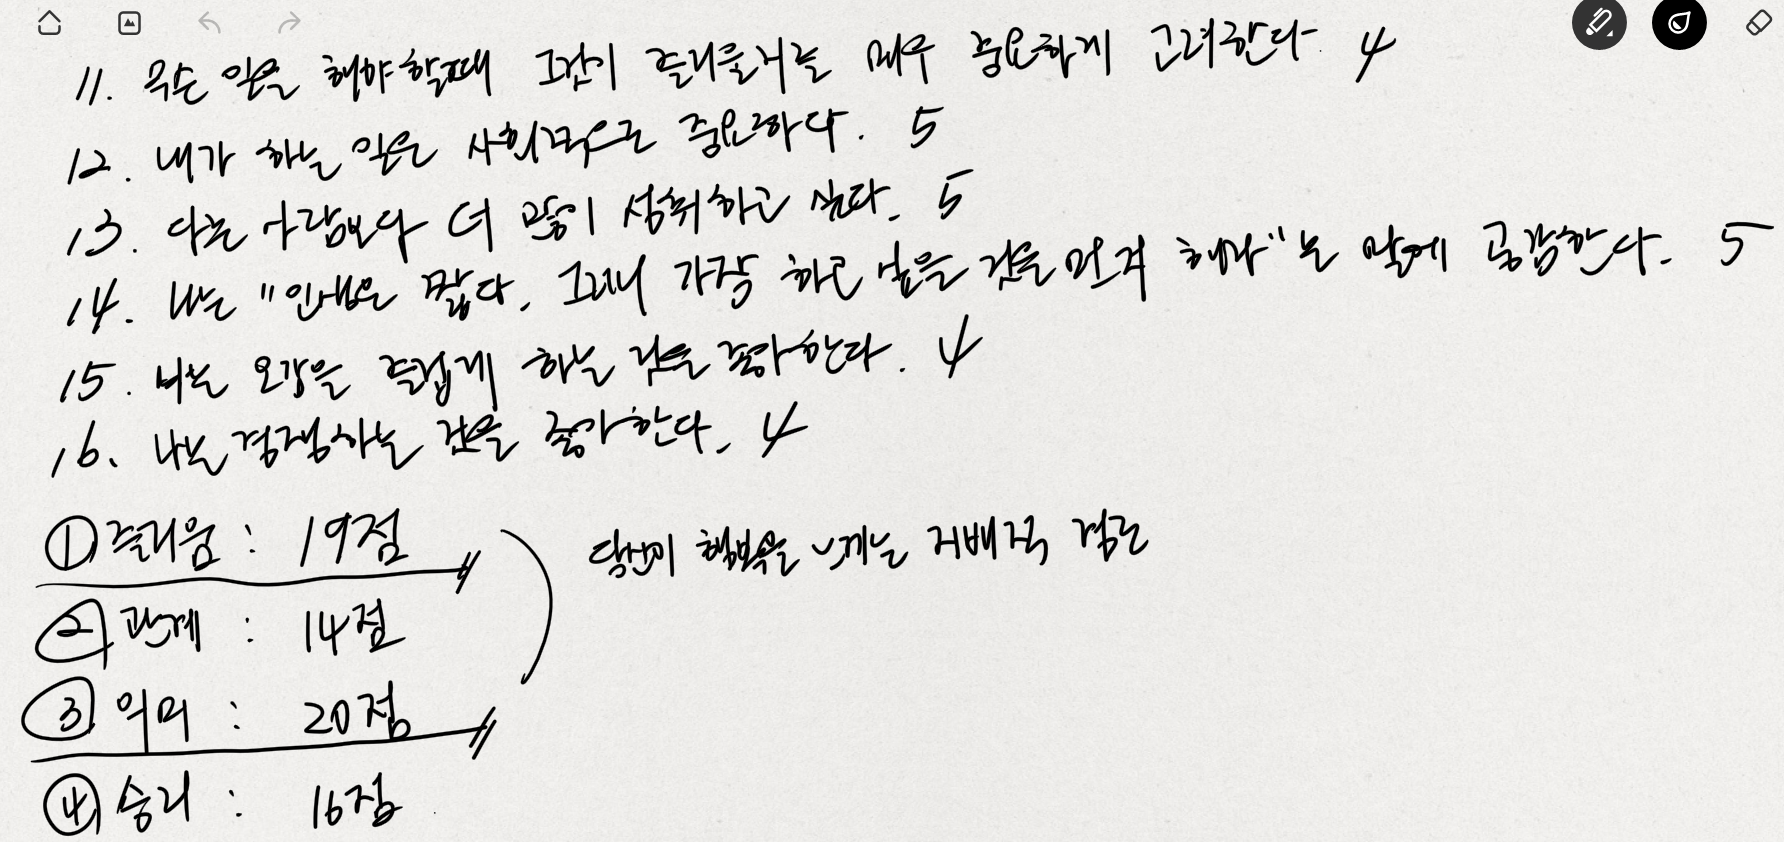 11. 무슨 일을 해야 할때 그것이 즐거울지를 매우 중요하게 고려한다. 4
12. 내가 하는 일은 사회적으로 중요하다. 5
13. 다른 사람보다 더 많이 성취하고 싶다. 5
14. 나는 "인생은 짧다. 그러니 가장 하고 싶은 것을 먼저 해라"는 말에 공감한다. 5
15. 나는 오감을 즐겁게 하는 것을 좋아한다. 4
16. 나는 경쟁하는 것을 좋아한다. 4
① 즐거움 : 19점
당신이 행복을 느끼는 지배적 경로
② 관계 : 14점
③ 의미 : 20점
④ 승리 : 16점